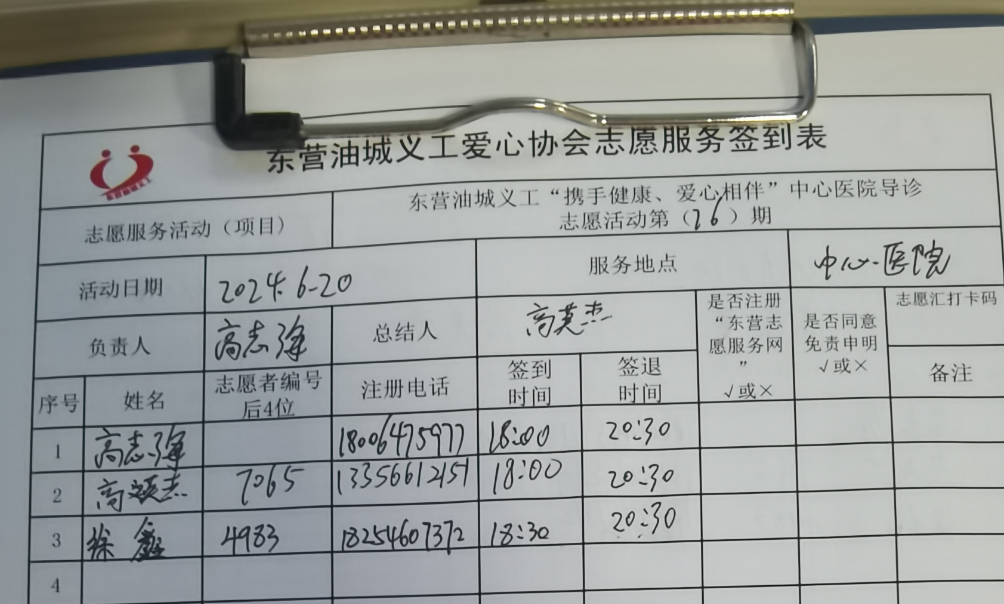 东营油城义工爱心协会志愿服务签到表
志愿服务活动（项目）
东营油城义工“携手健康、爱心相伴”中心医院导诊
志愿活动第（26）期
活动日期
2024.6-20
服务地点
中心医院
负责人
高志强
总结人
高英杰
是否注册
“东营志
愿服务网
”
√或×
是否同意
免责申明
√或×
志愿汇打卡码
备注
序号
姓名
志愿者编号
后4位
注册电话
签到
时间
签退
时间
1 高志强 18006475977 18:00 20:30
2 高 杰 7065 13356612151 18:00 20:30
3 徐鑫 4983 18254607372 18:30 20:30
4